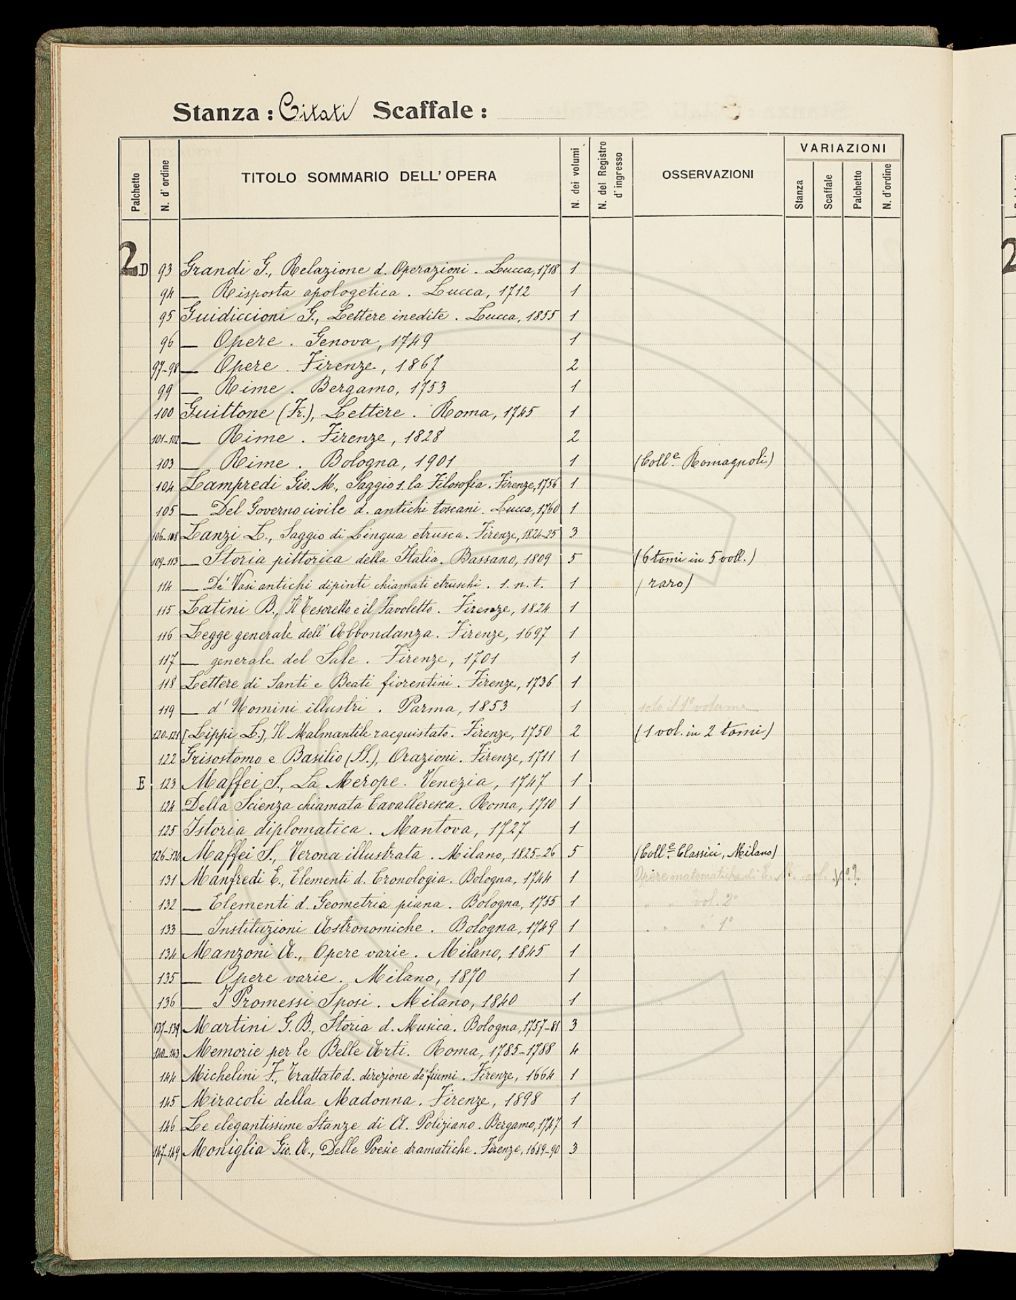 Stanza: Citati Scaffale:
Palchetto N. d'ordine TITOLO SOMMARIO DELL'OPERA N. dei volumi N. del Registro d'ingresso OSSERVAZIONI VARIAZIONI Stanza Scaffale Palchetto N. d'ordine
2 D 93 Grandi G., Relazione d. Operazioni. Lucca, 1718 1
94 — Risposta apologetica. Lucca, 1712 1
95 Guidiccioni G., Lettere inedite. Lucca, 1855 1
96 — Opere. Genova, 1749 1
97-98 — Opere. Firenze, 1867 2
99 — Rime. Bergamo, 1753 1
100 Guittone (Fr.), Lettere. Roma, 1745 1
101-102 — Rime. Firenze, 1828 2
103 — Rime. Bologna, 1901 1 (Coll.e Romagnoli)
104 Lampredi Gio. M., Saggio s. la Filosofia. Firenze, 1756 1
105 — Del Governo civile d. antichi toscani. Lucca, 1760 1
106-108 Lanzi L., Saggio di Lingua etrusca. Firenze, 1824-25 3
109-113 — Storia pittorica della Italia. Bassano, 1809 5 (6 tomi in 5 voll.)
114 — De' Vasi antichi dipinti chiamati etruschi. s. n. t. 1 (raro)
115 Latini B., Il Tesoretto e il Favoletto. Firenze, 1824 1
116 Legge generale dell'Abbondanza. Firenze, 1697 1
117 — generale del Sale. Firenze, 1701 1
118 Lettere di Santi e Beati fiorentini. Firenze, 1736 1
119 — d'Uomini illustri. Parma, 1853 1 solo il 1° volume
120-121 [Lippi L.], Il Malmantile racquistato. Firenze, 1750 2 (1 vol. in 2 tomi)
122 Grisostomo e Basilio (SS.), Orazioni. Firenze, 1711 1
E 123 Maffei S., La Merope. Venezia, 1747 1
124 Della Scienza chiamata Cavalleresca. Roma, 1710 1
125 Istoria diplomatica. Mantova, 1727 1
126-130 Maffei S., Verona illustrata. Milano, 1825-26 5 (Coll.e Classici, Milano)
131 Manfredi E., Elementi d. Cronologia. Bologna, 1744 1 Opere matematiche di E. M. vol.
132 — Elementi d. Geometria piana. Bologna, 1755 1 " " vol. 2°
133 — Instituzioni Astronomiche. Bologna, 1749 1 " " " 1°
134 Manzoni A., Opere varie. Milano, 1845 1
135 — Opere varie. Milano, 1870 1
136 — I Promessi Sposi. Milano, 1840 1
137-139 Martini G. B., Storia d. Musica. Bologna, 1757-81 3
140-143 Memorie per le Belle Arti. Roma, 1785-1788 4
144 Michelini F., Trattato d. direzione de' fiumi. Firenze, 1664 1
145 Miracoli della Madonna. Firenze, 1898 1
146 Le elegantissime Stanze di A. Poliziano. Bergamo, 1747 1
147-149 Moniglia Gio. A., Delle Poesie dramatiche. Firenze, 1689-90 3